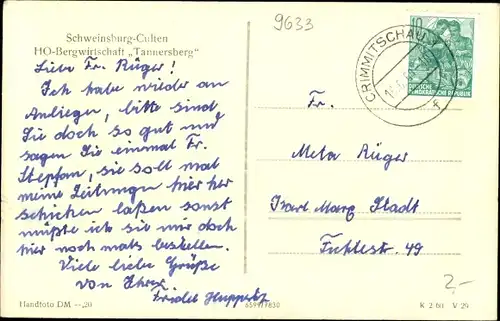 Schweinsburg-Culten
HO-Bergwirtschaft „Tannersberg"
9633
CRIMMITSCHAU
10
DEUTSCHE
DEMOKRATISCHE REPUBLIK
Liebe Fr. Rüger!
Ich habe wieder an
Anliegen, bitte sind
Sie doch so gut und
sagen Sie einmal Fr.
sie soll mal
meine Zeitungen hier her
schicken laßen sonst
müßte ich sie mir doch
hier noch mals bestellen.
Viele liebe Grüße
von Ihrer
Friedel
Fr.
Meta Rüger
Karl Marx Stadt
Fichtestr. 49
2,-
Handfoto DM -,20
K 2 60 V 29